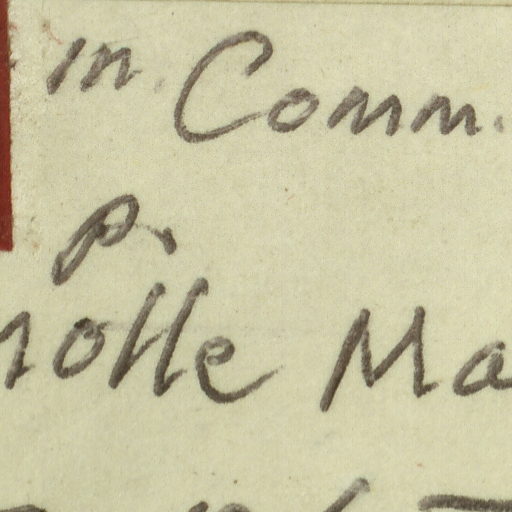 in Comm.
p.
nolle Ma